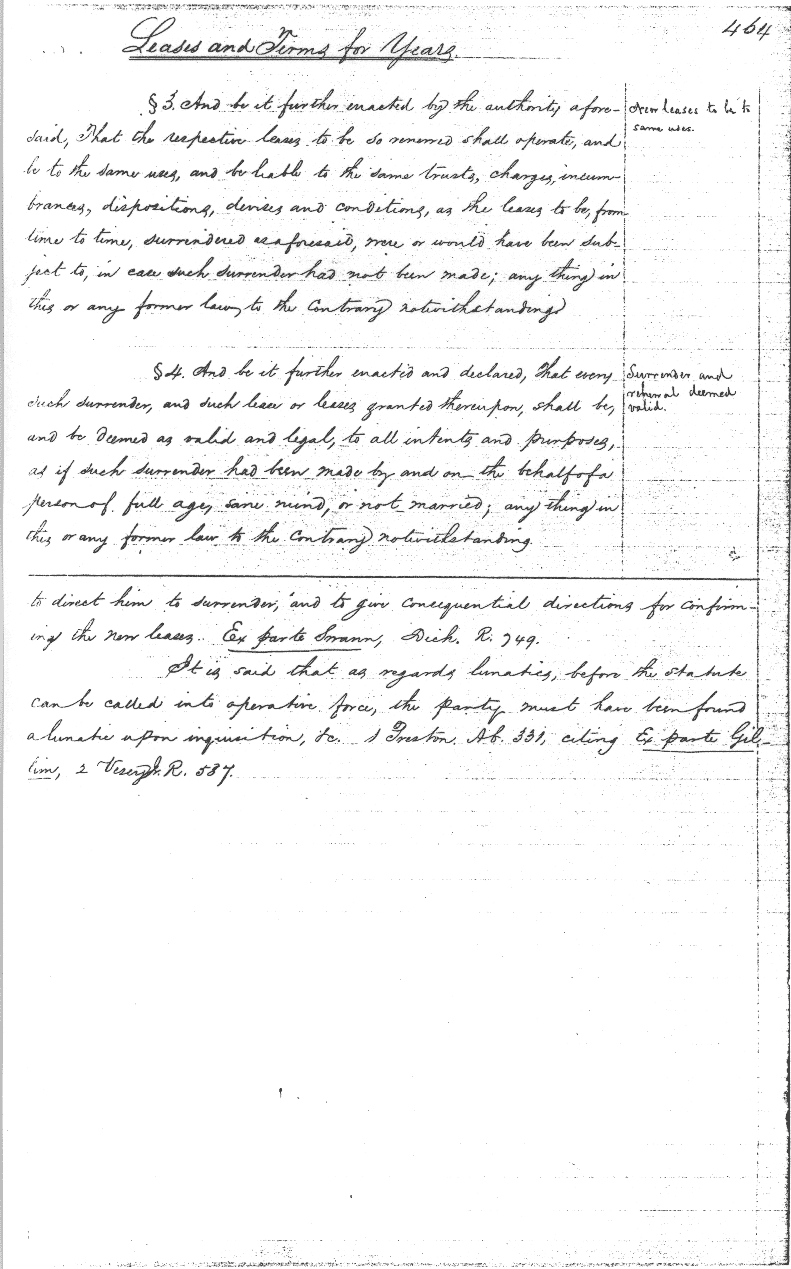 464
Leases and Terms for Years.
§ 3. And be it further enacted by the authority afore-
said, That the respective leases to be so renewed shall operate, and
be to the same uses, and be liable to the same trusts, charges, incum-
brances, dispositions, devises and conditions, as the leases to be, from
time to time, surrendered as aforesaid, were or would have been sub-
ject to, in case such surrender had not been made; any thing in
this or any former law, to the contrary notwithstanding
New leases to be to
same uses.
§ 4. And be it further enacted and declared, That every
such surrender, and such lease or leases granted thereupon, shall be,
and be deemed as valid and legal, to all intents and purposes,
as if such surrender had been made by and on the behalf of a
person of full age, sane mind, or not married; any thing in
this or any former law to the contrary notwithstanding.
Surrender and
renewal deemed
valid.
to direct him to surrender, and to give consequential directions for confirm-
ing the new leases. Ex parte Swann, Dick. R. 749.
It is said that as regards lunatics, before the statute
can be called into operative force, the party must have been found
a lunatic upon inquisition, &c. 1 Preston. Ab. 331, citing Ex parte Gil-
lim, 2 Vesey Jr. R. 587.